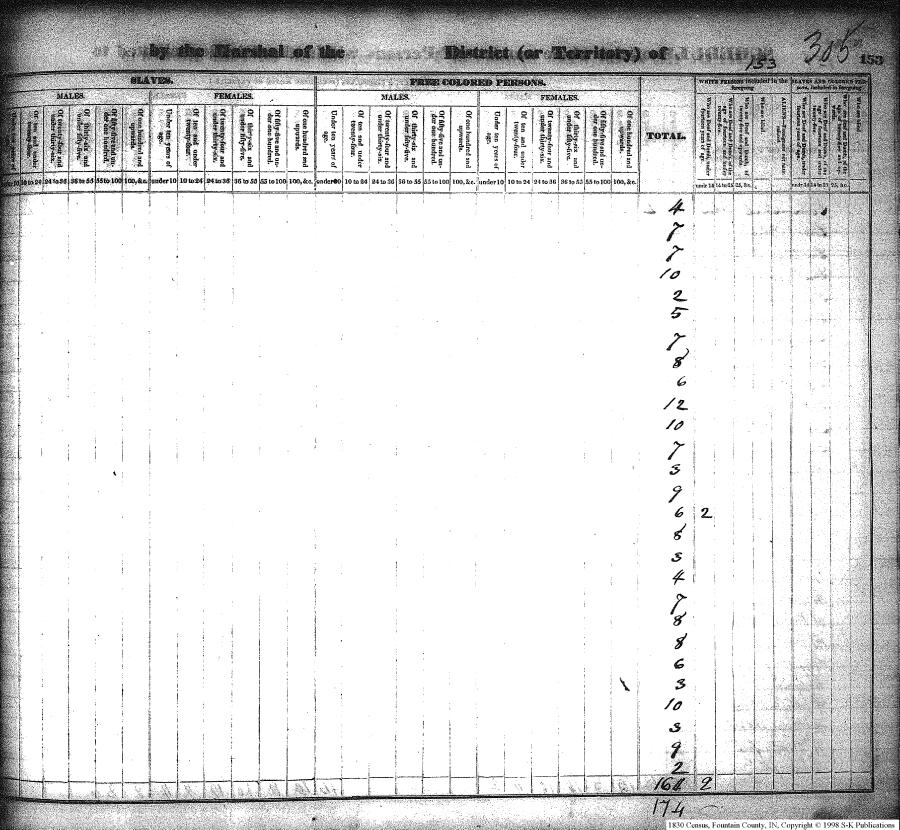 by the Marshal of the District (or Territory) of
305
153
153
SLAVES.
FREE COLORED PERSONS.
TOTAL.
WHITE PERSONS included in the foregoing
SLAVES AND COLORED PERSONS, included in foregoing
MALES. FEMALES. MALES. FEMALES.
Of ten and under twenty-four. Of twenty-four and under thirty-six. Of thirty-six and under fifty-five. Of fifty-five and under one hundred. Of one hundred and upwards.
Under ten years of age. Of ten and under twenty-four. Of twenty-four and under thirty-six. Of thirty-six and under fifty-five. Of fifty-five and under one hundred. Of one hundred and upwards.
Under ten years of age. Of ten and under twenty-four. Of twenty-four and under thirty-six. Of thirty-six and under fifty-five. Of fifty-five and under one hundred. Of one hundred and upwards.
Under ten years of age. Of ten and under twenty-four. Of twenty-four and under thirty-six. Of thirty-six and under fifty-five. Of fifty-five and under one hundred. Of one hundred and upwards.
10 to 24 24 to 36 36 to 55 55 to 100 100, &c. under 10 10 to 24 24 to 36 36 to 55 55 to 100 100, &c. under 10 10 to 24 24 to 36 36 to 55 55 to 100 100, &c. under 10 10 to 24 24 to 36 36 to 55 55 to 100 100, &c. undr 14 14 to 25 25, &c. undr 14 14 to 25 25, &c.
4
7
7
10
2
5
7
8
6
12
10
7
3
9
6 2
8
3
4
7
8
8
6
3
10
3
9
2
2
174
1830 Census, Fountain County, IN, Copyright © 1998 S-K Publications